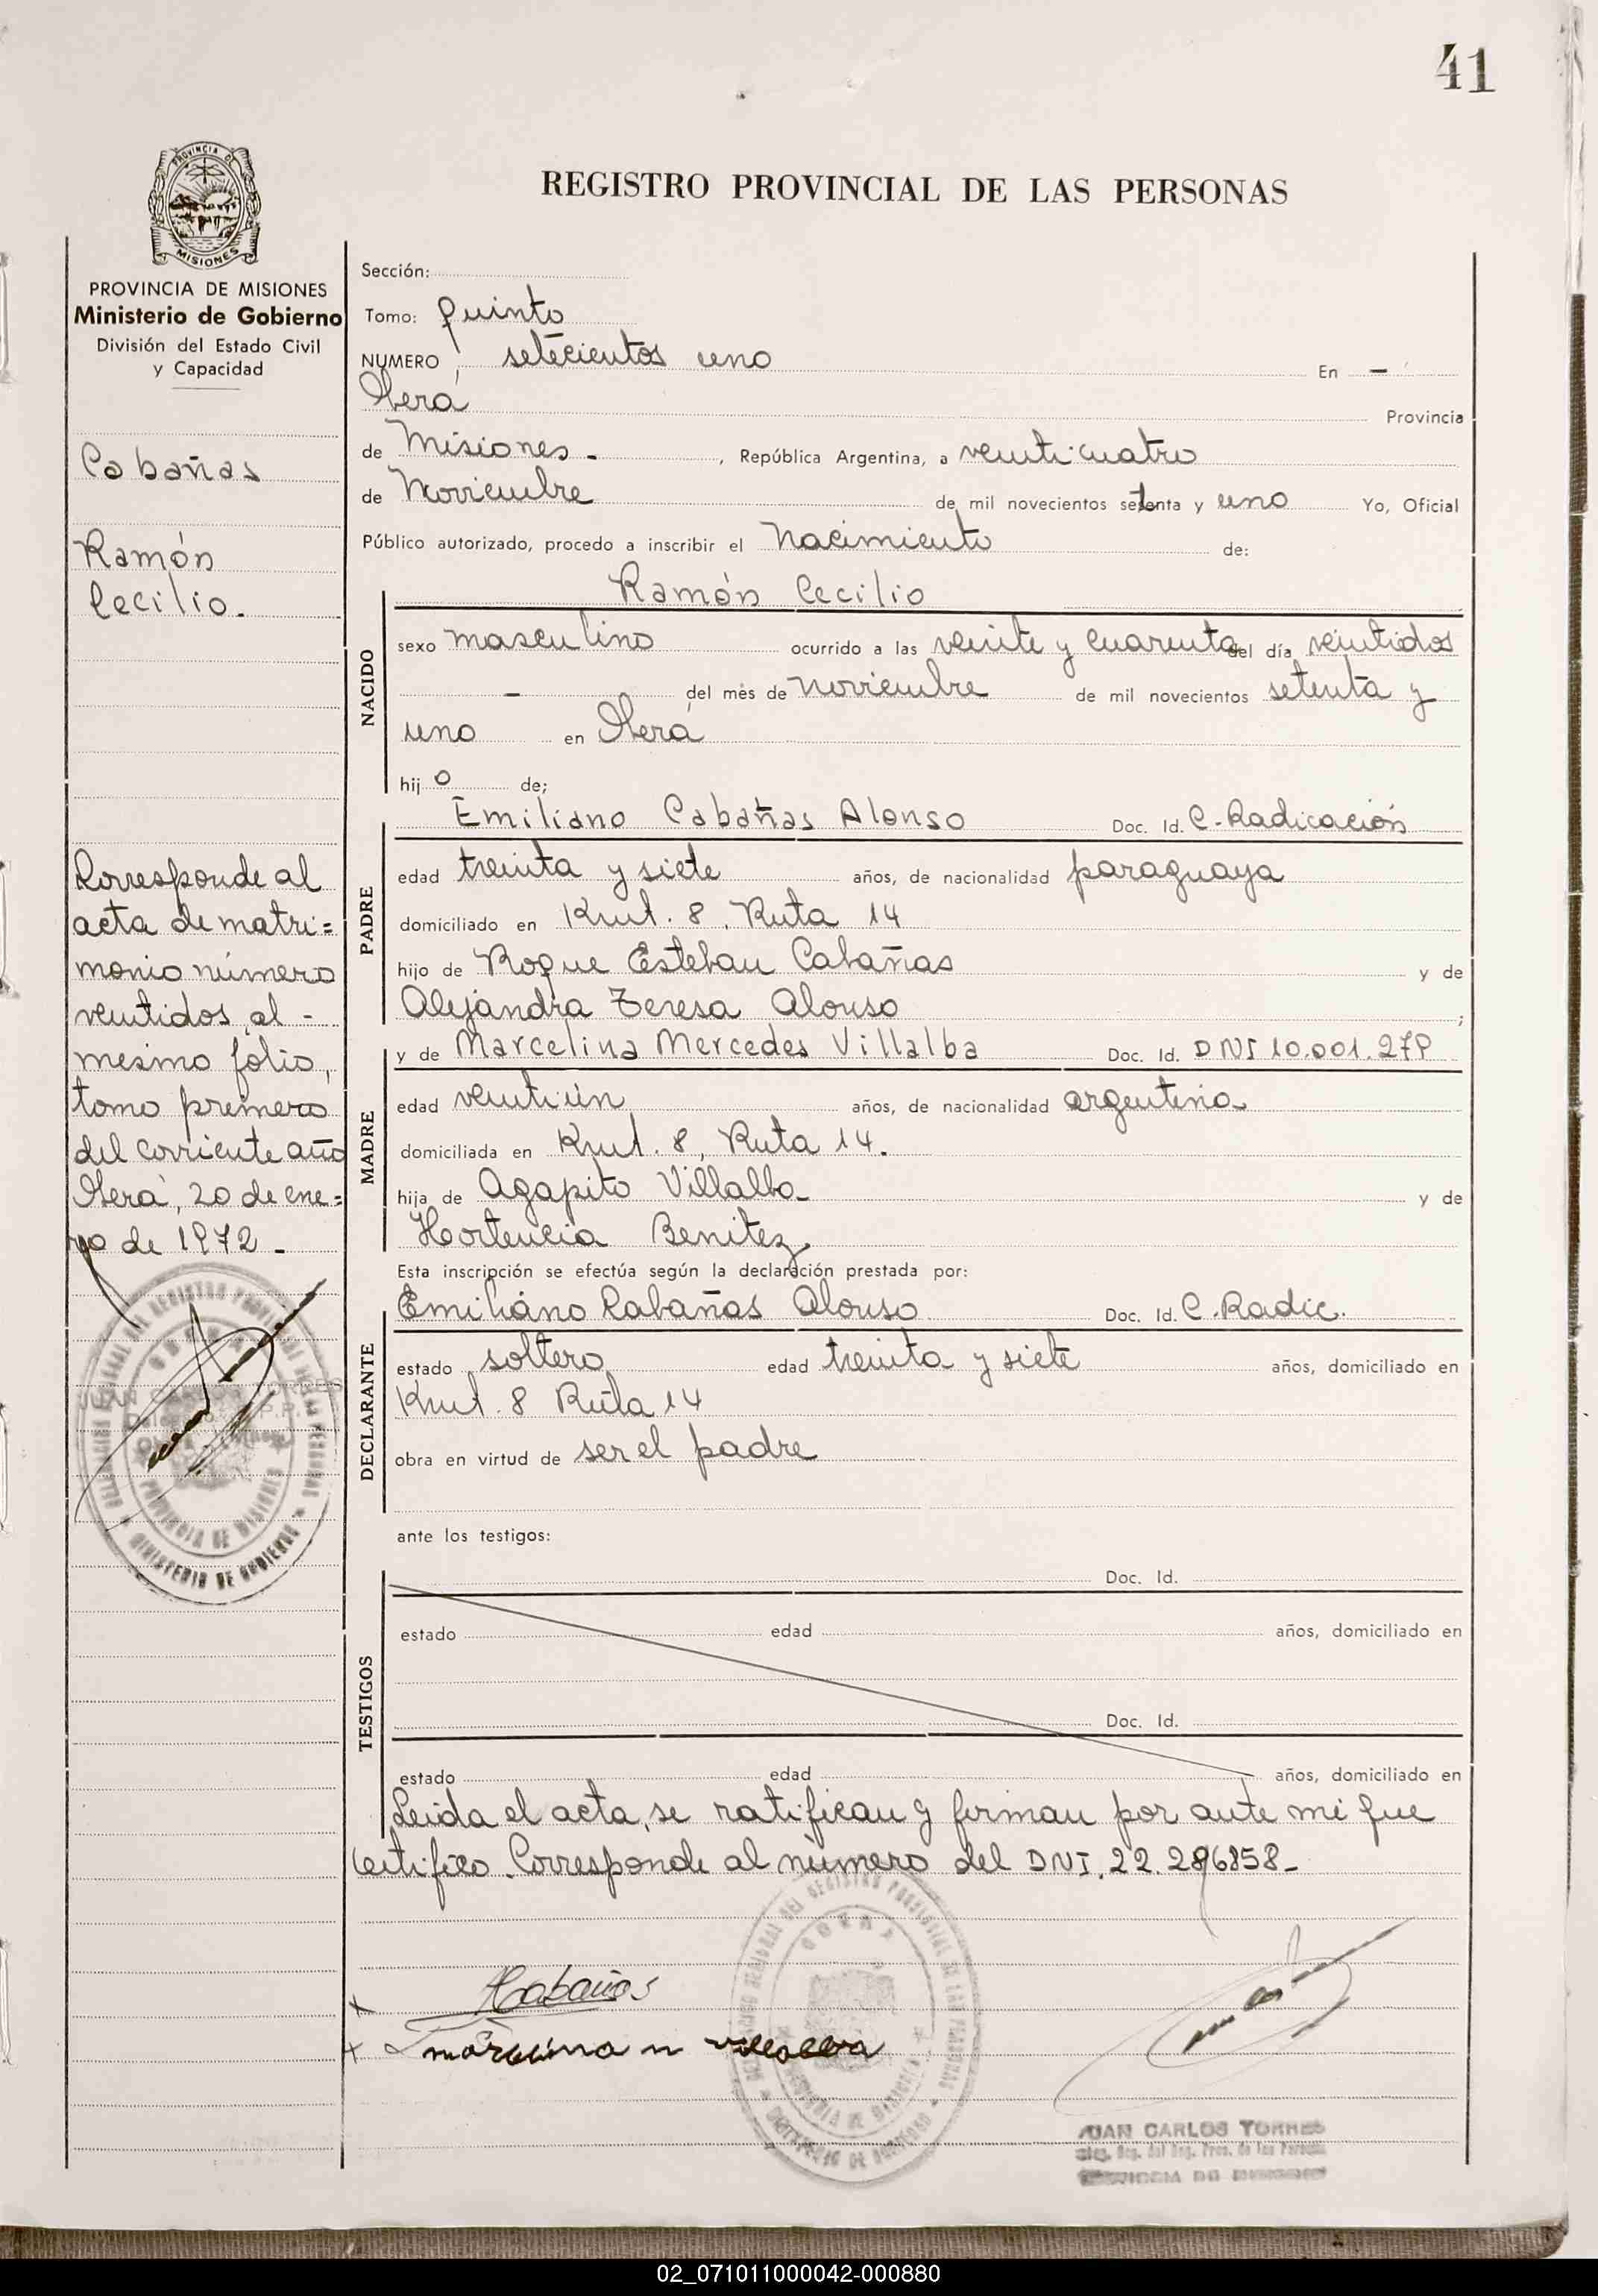 41
PROVINCIA DE
MISIONES
REGISTRO PROVINCIAL DE LAS PERSONAS
PROVINCIA DE MISIONES
Ministerio de Gobierno
División del Estado Civil
y Capacidad
Cabañas
Ramón
Cecilio.
Corresponde al
acta de matri=
monio número
veintidos, al -
mesimo folio,
tomo primero
del corriente año
Oberá, 20 de ene=
ro de 1972 -
Sección:
Tomo: quinto
NUMERO setecientos uno En -
Oberá Provincia
de Misiones - , República Argentina, a veinticuatro
de Noviembre de mil novecientos setenta y uno Yo, Oficial
Público autorizado, procedo a inscribir el Nacimiento de:
Ramón Cecilio
NACIDO
sexo masculino ocurrido a las veinte y cuarenta del día veintidos
- del mes de noviembre de mil novecientos setenta y
uno en Oberá
hij o de;
Emiliano Cabañas Alonso Doc. Id. C. Radicación
PADRE
edad treinta y siete años, de nacionalidad paraguaya
domiciliado en Kmt. 8, Ruta 14
hijo de Roque Esteban Cabañas y de
Alejandra Teresa Alonso ;
y de Marcelina Mercedes Villalba Doc. Id. DNI 10.001.279
MADRE
edad veintiún años, de nacionalidad argentina
domiciliada en Kmt. 8, Ruta 14.
hija de Agapito Villalba y de
Hortencia Benitez
Esta inscripción se efectúa según la declaración prestada por:
Emiliano Cabañas Alonso Doc. Id. C. Radic.
DECLARANTE
estado soltero edad treinta y siete años, domiciliado en
Kmt. 8 Ruta 14
obra en virtud de ser el padre
ante los testigos:
TESTIGOS
Doc. Id.
estado edad años, domiciliado en
Doc. Id.
estado edad años, domiciliado en
Leida el acta, se ratifican y firman por ante mi que
certifico. Corresponde al número del DNI. 22.296858-
x Cabañas
x marcelina m villalba
PROVINCIA DE MISIONES
MINISTERIO DE GOBIERNO
JUAN CARLOS TORRES
02_071011000042-000880